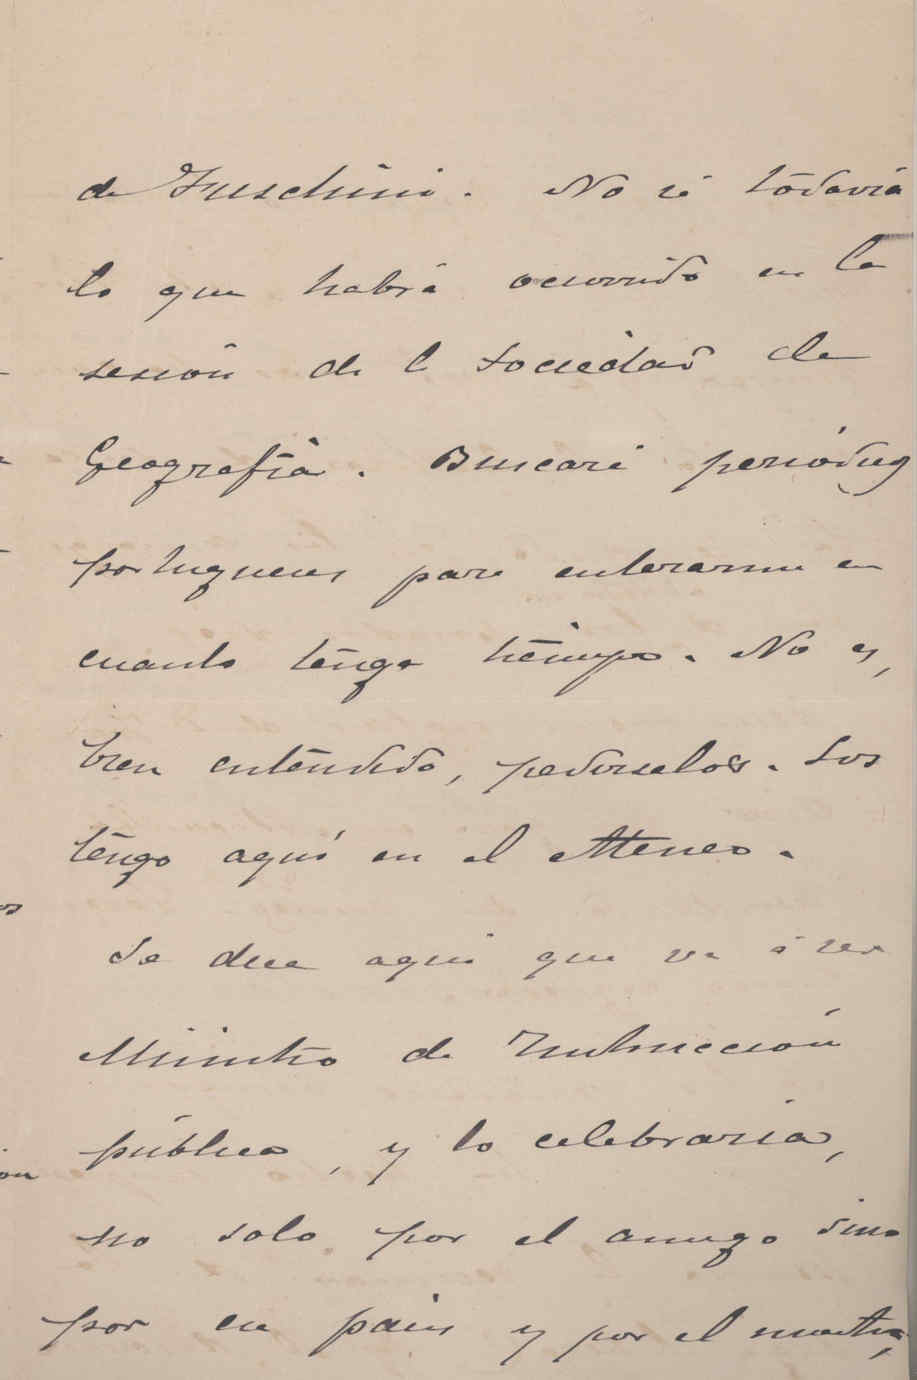 de Fuschini. No sé todavía
lo que habrá ocurrido en la
sesión de la Sociedad de
Geografía. Buscaré periódicos
portugueses para enterarme en
cuanto tenga tiempo. No es,
bien entendido, pedírselos. Los
tengo aquí en el Ateneo.
Se dice aquí que va á ser
Ministro de Instrucción
pública, y lo celebraría,
no solo por el amigo sino
por su país y por el nuestro,